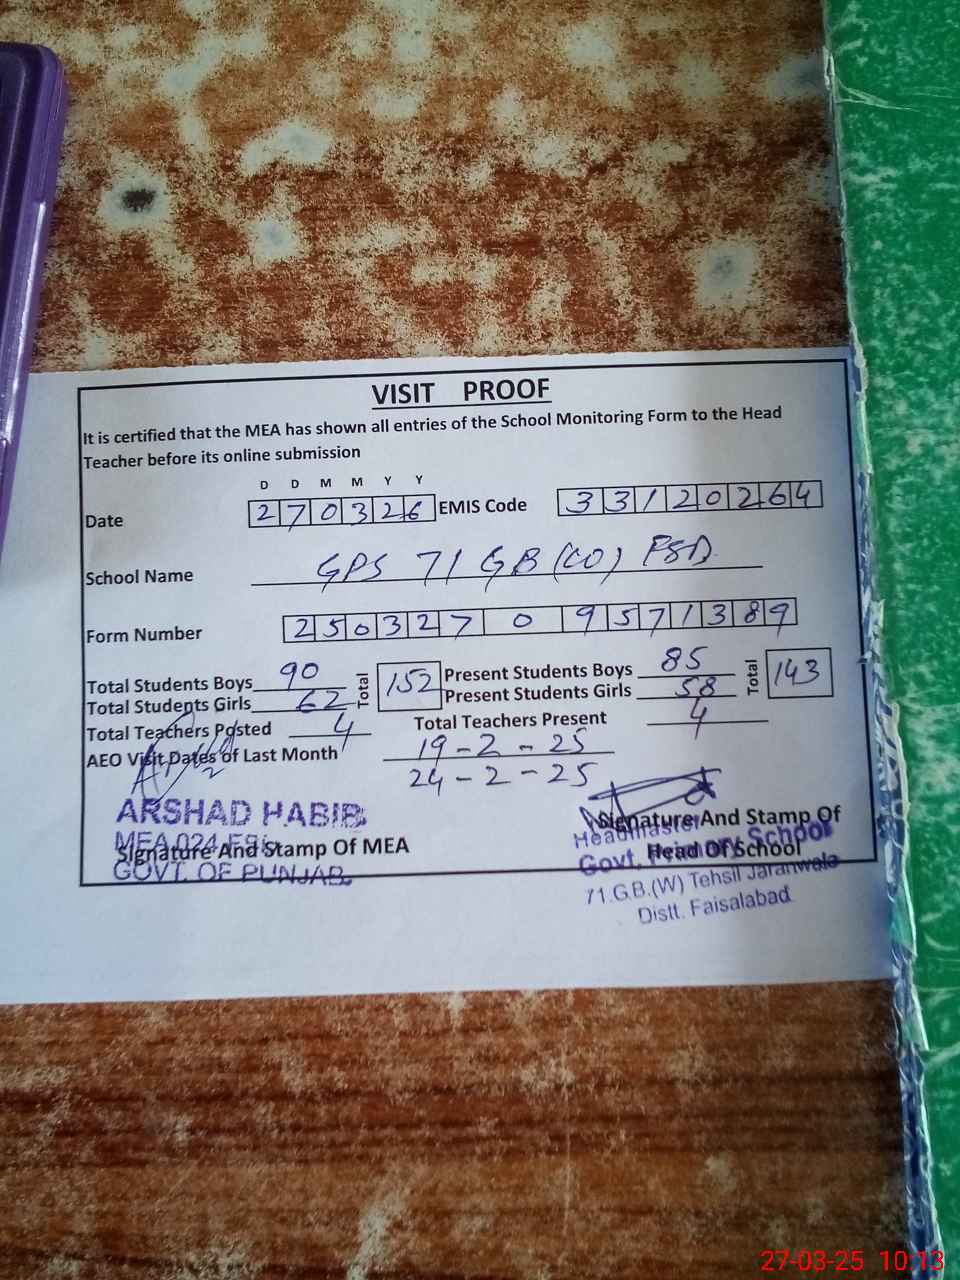 VISIT PROOF
It is certified that the MEA has shown all entries of the School Monitoring Form to the Head
Teacher before its online submission
D D M M Y Y
Date 270326 EMIS Code 33120264
School Name GPS 71 GB (CO) FSD.
Form Number 250327 0 9571389
Total Students Boys 90 Total 152 Present Students Boys 85 Total 143
Total Students Girls 62 Present Students Girls 58
Total Teachers Posted 4 Total Teachers Present 4
AEO Visit Dates of Last Month 19-2-25
24-2-25
ARSHAD HABIB
MEA 024
Signature And Stamp Of MEA
GOVT. OF PUNJAB.
Signature And Stamp Of
Head Of School
Headmaster
Govt. Primary School
71.G.B.(W) Tehsil Jaranwala
Distt. Faisalabad
27-03-25 10:13